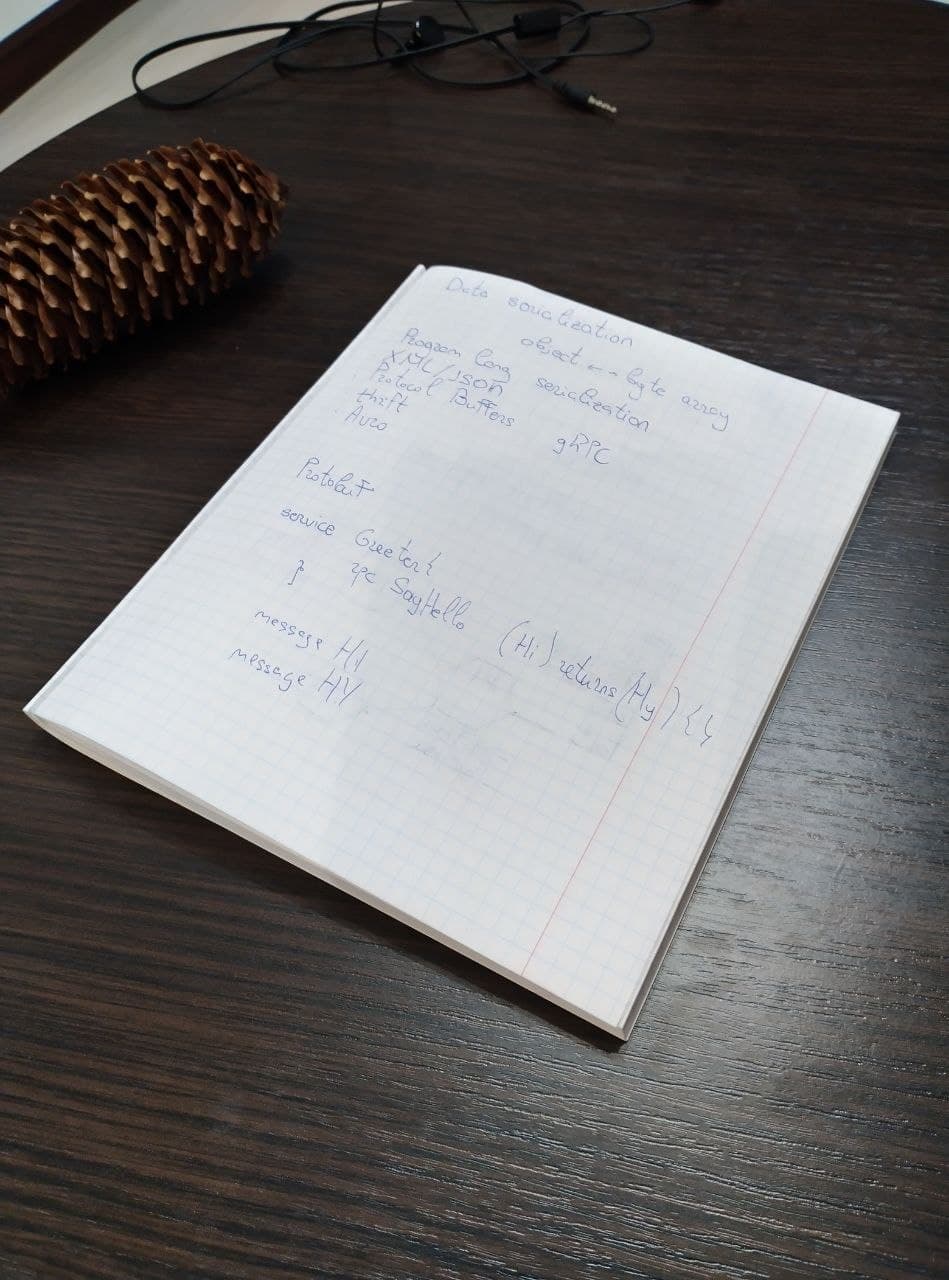 Data serialization
object <-- byte array
Program lang serialization
XML/JSON
Protocol Buffers gRPC
thrift
Avro
Protobuf
service Greeter{
rpc SayHello (Hi) returns (Hy) {}
}
message Hi
message HY